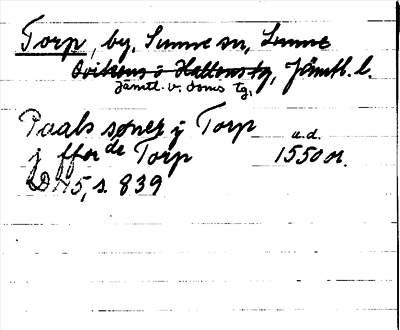 Torp, by, Sunne sn, Sunne
Ovikens o Hallens tg, Jämtl. l.
Jämtl. v. doms tg.
Paals søner j Torp
j ffor de Torp 1550 n. u.d.
DN 15, s. 839